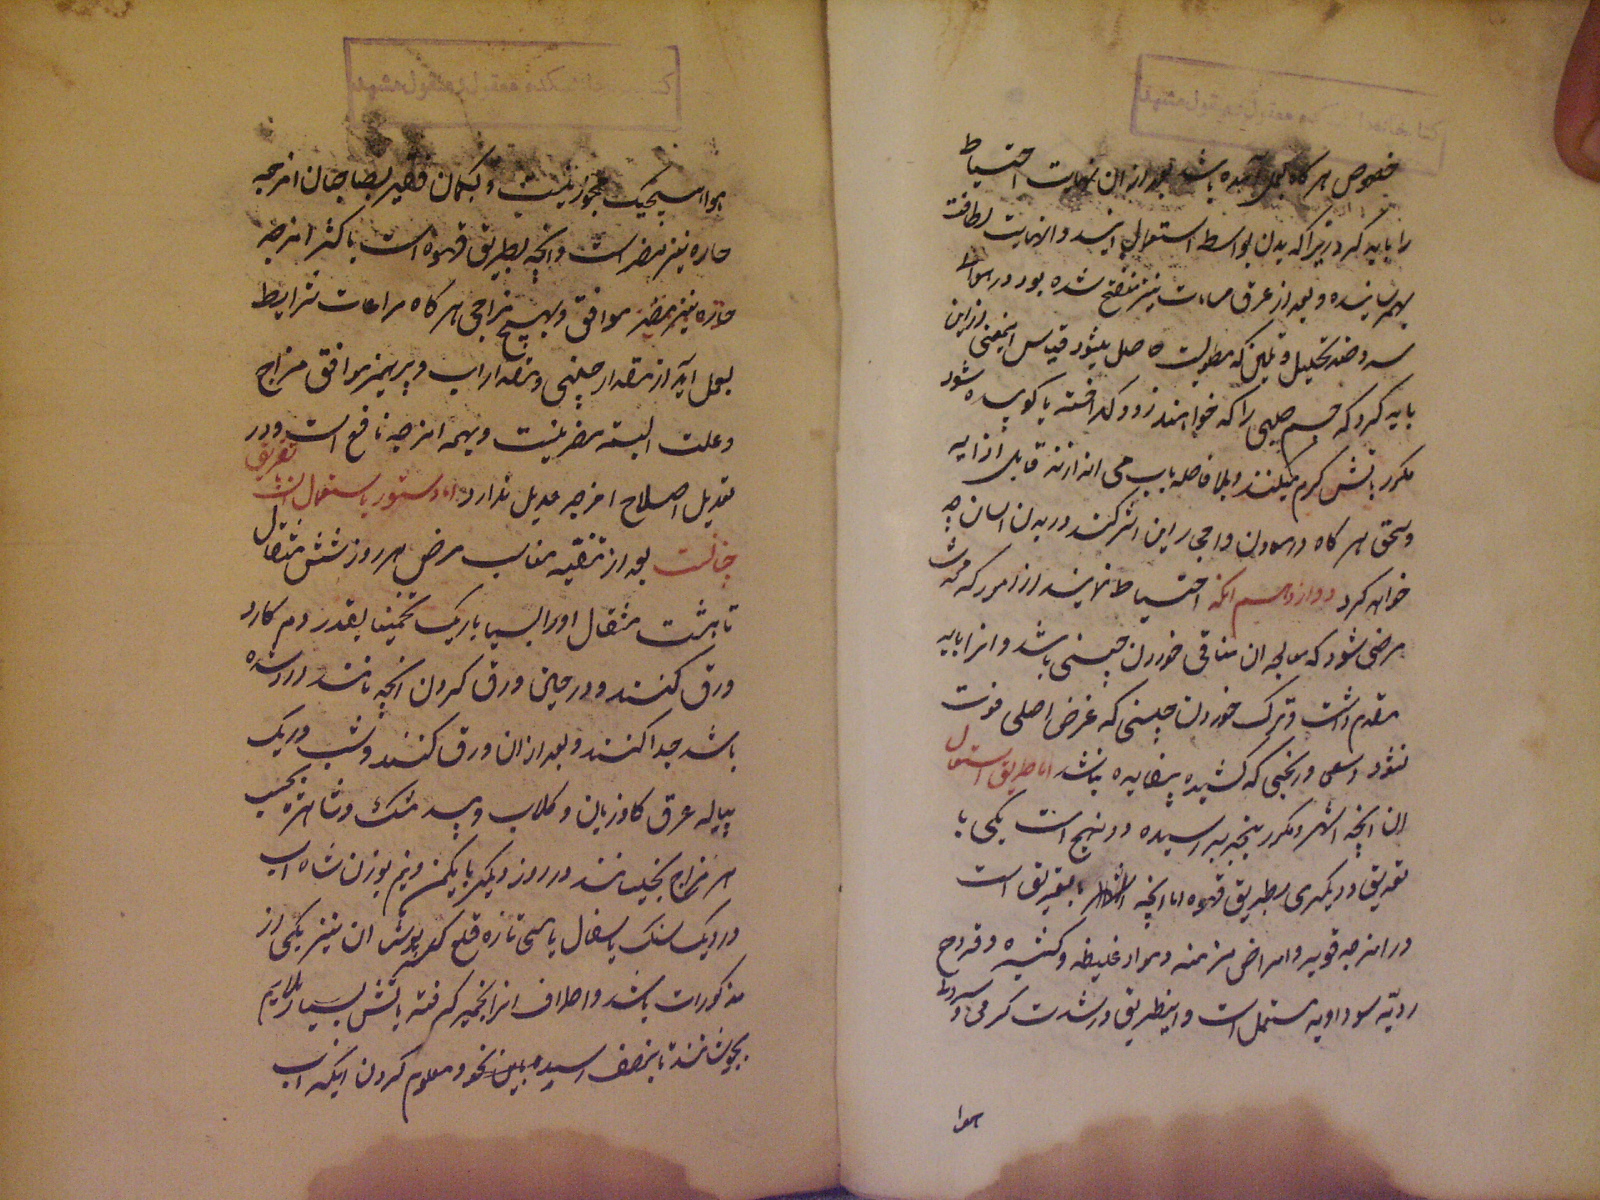 خصوص هرکاه بعمل آمده باشد بعد از ان نهایت احتیاط
را باید کرد زیرا که بدن بواسطه استعمال نهایت لطافت
بهم رسانیده و بعد از عرق مسامات نیز منفتح شده بود در هوای
سرد ضد تحلیل و تلیین که مطلوبست حاصل میشود قیاس اینمعنی از این
باید کرد که جسم صلبی را که خواهند زود کداخته یا کوبیده شود
مکرر باتش کرم میکنند و بلافاصله باب می اندازند قابل اذابه
و سحق هرکاه در معادن و احجار این اثر کند در بدن انسان چه
خواهد کرد دوازدهم انکه احتیاط نمایند از امور که محدث
مرضی شود که معالجه ان منافی خوردن چینی باشد و انرا باید
مقدم داشت و ترک خوردن چینی که غرض اصلی فوت
نشود و سعی و رنجی که کشیده بیفایده نباشد اما طریق استعمال
ان انچه اشهر و مکرر بتجربه رسیده دو نهج است یکی با
تفریق و دیکری بطریق قهوه اما انچه بتفریق است
در امزجه قویه و امراض مزمنه و مواد غلیظه و کثیره و قروح
ردیّه سوداویه مستعمل است و اینطریق در شدت کرمی و سردی
هوا
هوا هیچیک مجوز نیست و بکمان فقیر بصاحبان امزجه
حاره نیز مضر است و انچه بطریق قهوه است باکثر امزجه
حاره نیز موافق و بهیچ مزاجی هرکاه مراعات شرایط
بعمل آید از مقدار چینی و مقدار اب و پرهیز موافق مزاج
و علت البته مضر نیست و بهمه امزجه نافع است و در
تعدیل و اصلاح امزجه عدیل ندارد اما دستور استعمال ان بتفریق
چنانست بعد از تنقیه مناسب مرض هر روز شش مثقال
تا هشت مثقال اورا بسیار باریک تخمینا بقدر دم کارد
ورق کنند و در حین ورق کردن انچه مانند ارد شده
باشد جدا کنند و بعد از ان ورق کنند و شب در یک
پیاله عرق کاوزبان و کلاب و بید مشک و شاهتره بحسب
هر مزاج بخیسانند و در روز دیکر با یکمن و نیم بوزن شاه اب
در دیک سنک یا سفال یا مسی تازه قلع که سرپوش ان نیز یکی از
مذکورات باشد و اطراف انرا بخمیر کرفته باتش بسیار ملایم
بجوشانند تا بنصف رسیده بدین نحو و معلوم کردن اینکه اب